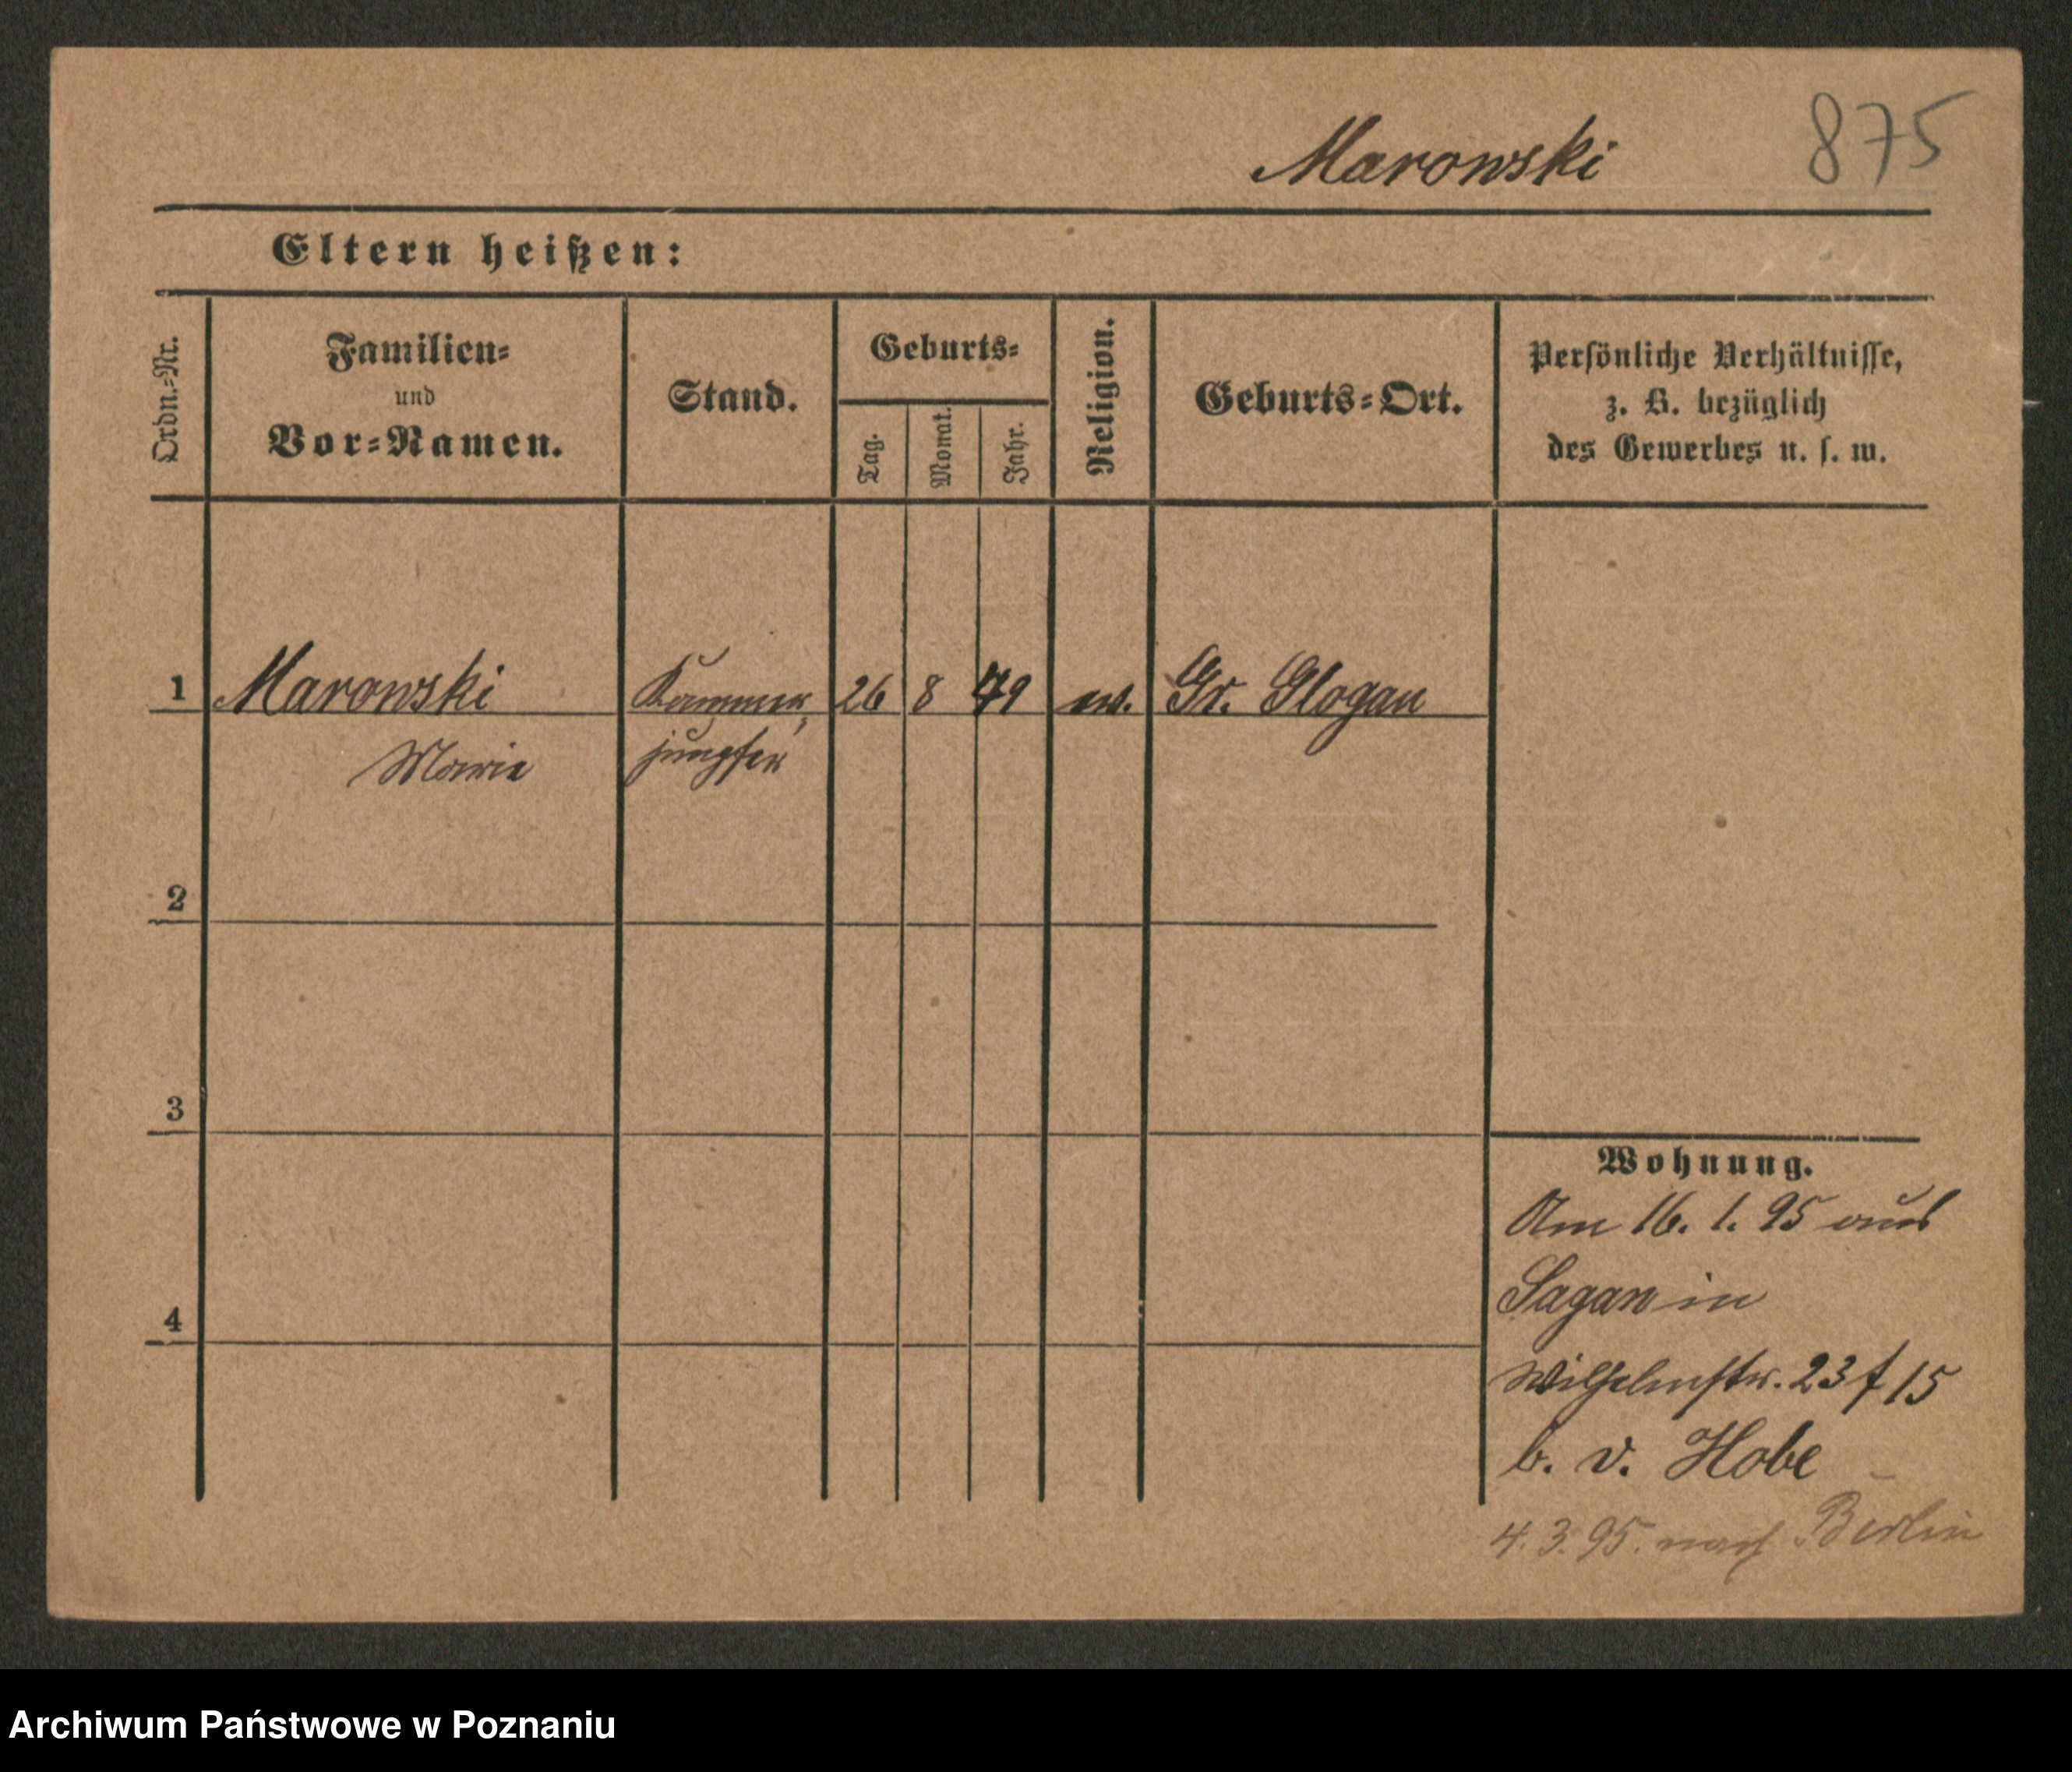 Marowski 875
Eltern heißen:
Ordn.-Nr.
Familien-
und
Vor-Namen.
Stand.
Geburts-
Tag.
Monat.
Jahr.
Religion.
Geburts-Ort.
Persönliche Verhältnisse,
z. B. bezüglich
des Gewerbes u. s. w.
1 Marowski Kammer 26 8 49 ev. Gr. Glogau
Marie jungfer
2
3
4
Wohnung.
Am 16. 1. 95 aus
Sagan in
Wilhelmstr. 23 f 15
b. v. Hobe
4. 3. 95. nach Berlin
Archiwum Państwowe w Poznaniu